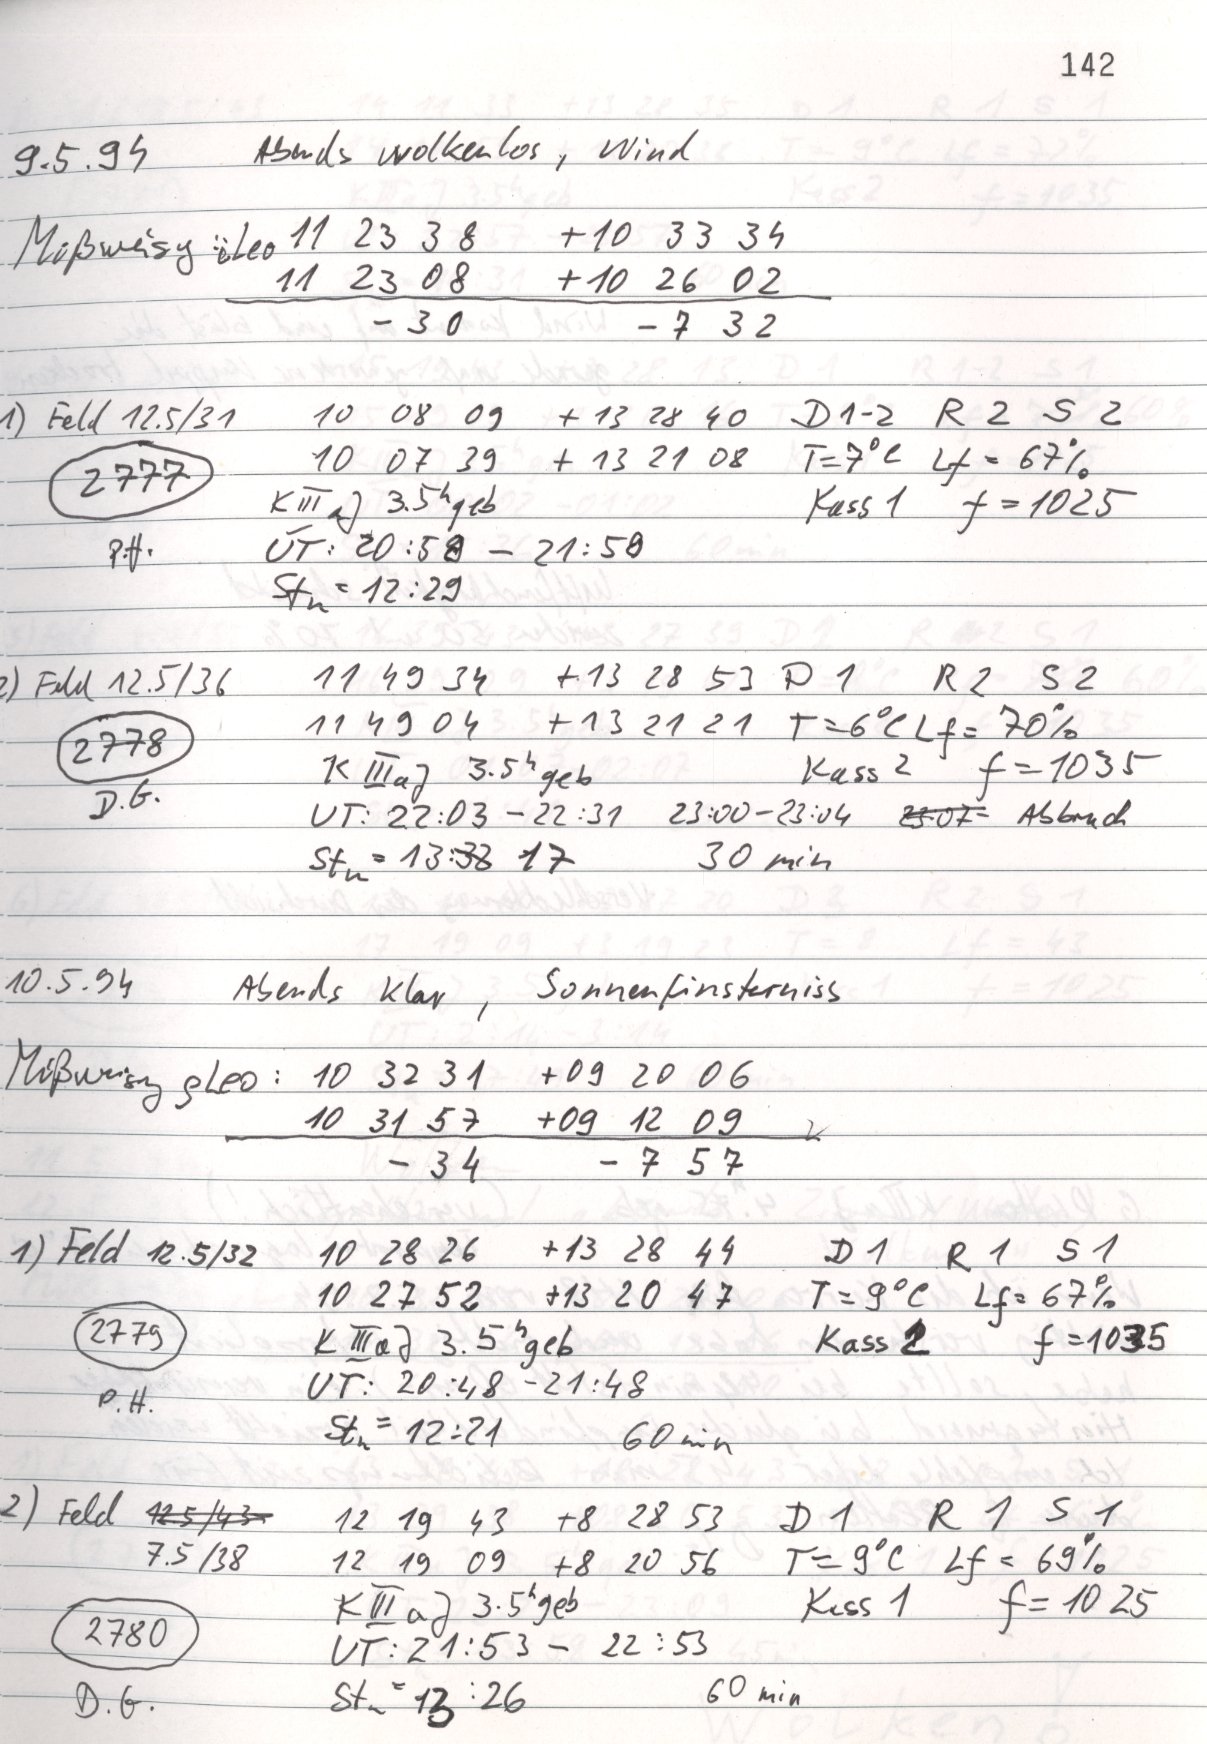 142
9.5.94 Abends wolkenlos, Wind
Mißweisg ιLeo 11 23 38 +10 33 34
11 23 08 +10 26 02
-30 -7 32
1) Feld 12.5/31 10 08 09 +13 28 40 D1-2 R2 S2
2777 10 07 39 +13 21 08 T=7°C Lf=67%
KIIIaJ 3.5h geb Kass 1 f=1025
P.H. UT: 20:58 - 21:58
Stu = 12:29
2) Feld 12.5/36 11 49 34 +13 28 53 D1 R2 S2
2778 11 49 04 +13 21 21 T=6°C Lf=70%
KIIIaJ 3.5h geb Kass 2 f=1035
D.G. UT: 22:03 - 22:31 23:00 - 23:04 23:07- Abbruch
Stu = 13:38 17 30 min
10.5.94 Abends klar, Sonnenfinsterniss
Mißweisg ρLeo: 10 32 31 +09 20 06
10 31 57 +09 12 09
-34 -7 57
1) Feld 12.5/32 10 28 26 +13 28 44 D1 R1 S1
10 27 52 +13 20 47 T=9°C Lf=67%
2779 KIIIaJ 3.5h geb Kass 2 f=1035
P.H. UT: 20:48 - 21:48
Stu = 12:21 60 min
2) Feld 12.5/43 12 19 43 +8 28 53 D1 R1 S1
7.5/38 12 19 09 +8 20 56 T=9°C Lf=69%
KIIIaJ 3.5h geb Kass 1 f=1025
2780 UT: 21:53 - 22:53
D.G. Stu = 13:26 60 min